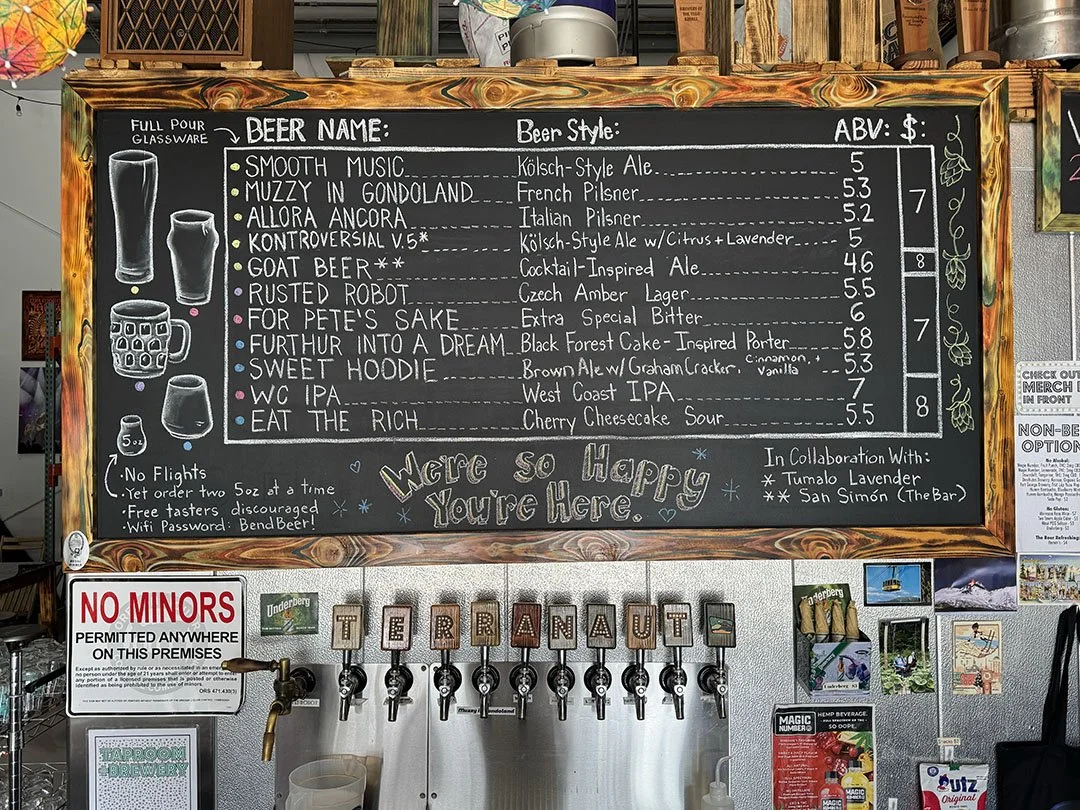 FULL POUR
GLASSWARE
BEER NAME: Beer Style: ABV: $:
SMOOTH MUSIC Kölsch-Style Ale 5
MUZZY IN GONDOLAND French Pilsner 5.3
7
ALLORA ANCORA Italian Pilsner 5.2
KONTROVERSIAL V.5* Kölsch-Style Ale w/Citrus + Lavender 5
GOAT BEER** Cocktail-Inspired Ale 4.6
8
RUSTED ROBOT Czech Amber Lager 5.5
FOR PETE'S SAKE Extra Special Bitter 6
7
FURTHUR INTO A DREAM Black Forest Cake-Inspired Porter 5.8
SWEET HOODIE Brown Ale w/Graham Cracker, Cinnamon, + Vanilla 5.3
WC IPA West Coast IPA 7
8
EAT THE RICH Cherry Cheesecake Sour 5.5
5oz
• No Flights
• Yet order two 5oz at a time
• Free tasters discouraged
• Wifi Password: BendBeer!
We're so Happy
You're Here.
In Collaboration With:
* Tumalo Lavender
** San Simón (The Bar)
CHECK OUT
MERCH
IN FRONT
NON-BE
OPTION
No Alcohol:
No Gluten:
NO MINORS
PERMITTED ANYWHERE
ON THIS PREMISES
Except as authorized by rule or as necessitated in an
no person under the age of 21 years shall enter or attempt to enter
any portion of a licensed premises that is posted or otherwise
identified as being prohibited to the use of minors.
ORS 471.430(3)
Underberg
TERRANAUT
Muzzy in Gondoland
Underberg $3
TAPROOM
BREWERY
MAGIC
NUMBER
HEMP BEVERAGE.
SO DOPE.
UTZ
Original